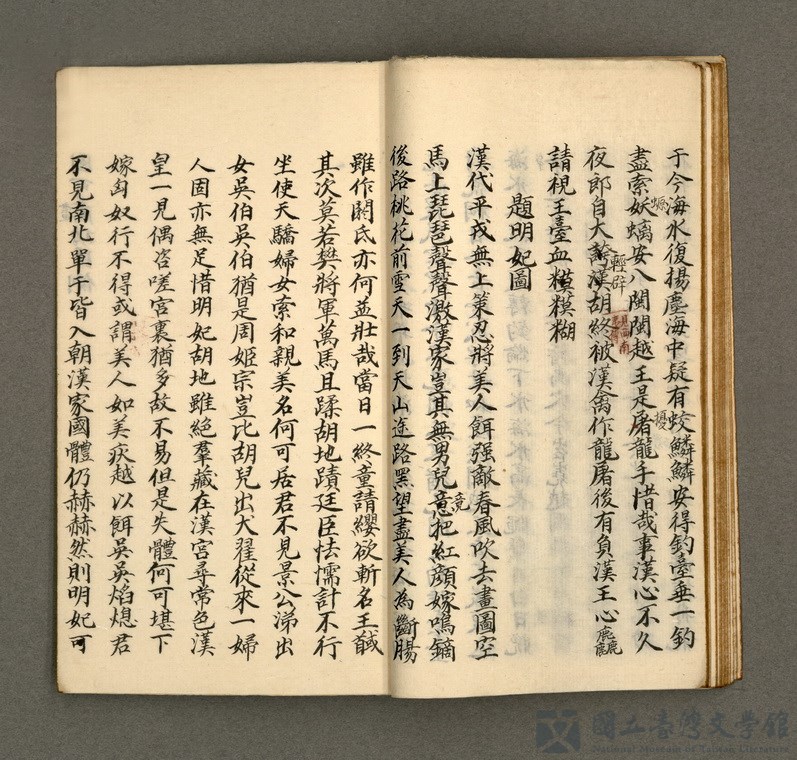 于今海水復揚塵海中疑有蛟鱗鱗安得釣臺垂一釣
盡索妖螭安八閩閩越王是屠龍手惜哉事漢心不久
夜郎自大誇漢胡終被漢禽作龍屠後有負漢王心麤
請視王臺血糢糢糊
題明妃圖
漢代平戎無上策忍將美人餌强敵春風吹去畫圖空
馬上琵琶聲聲激漢家豈其無男兒意把紅顔嫁鳴鏑
後路桃花前雪天一到天山途路黑望盡美人為斷腸
雖作閼氏亦何益壯哉當日一終童請纓欲斬名王馘
其次莫若樊將軍萬馬且蹂胡地蹟廷臣怯懦計不行
坐使天驕婦女索和親美名何可居君不見景公涕出
女吳伯吳伯猶是周姬宗豈比胡兒出大翟從來一婦
人固亦無足惜明妃胡地雖絕羣藏在漢宮尋常色漢
皇一見偶咨嗟宮裏猶多故不易但是失體何可堪下
嫁匈奴行不得或謂美人如美疢越以餌吳吳焰熄君
不見南北單于皆入朝漢家國體仍赫赫然則明妃可
輕辟
擾
竟
國立臺灣文學館
National Museum of Taiwan Literature